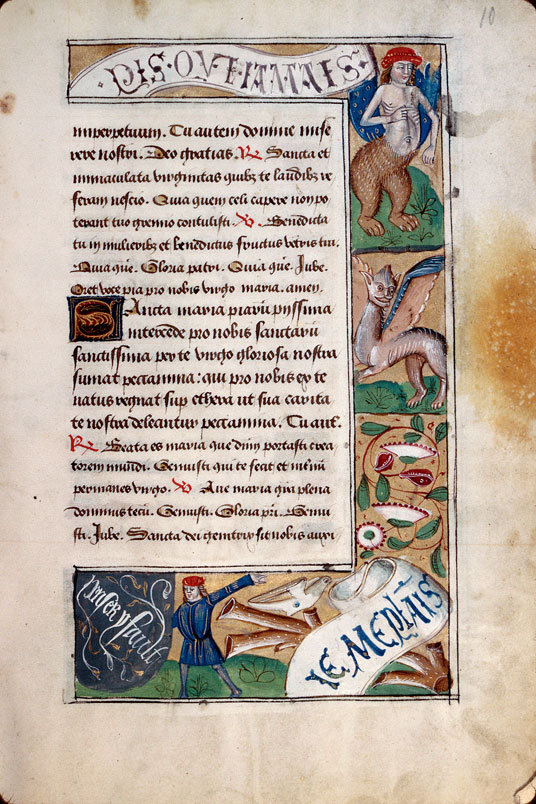 10
PIS·OVT·IAMAIS·
imperpetuum. Tu autem domine mise
rere nostri. Deo gratias. R Sancta et
immaculata virginitas quibz te laudibz re
feram nescio. Quia quem celi capere non po
terant tuo gremio contulisti. V. Benedicta
tu in mulieribz et benedictus fructus ventris tui.
Quia que. Gloria patri. Quia que. Iube.
Oret voce pia pro nobis virgo maria. amen.
Sancta maria piarū pyssima
intercede pro nobis sanctarū
sanctissima per te virgo gloriosa nostra
sumat peccamina: qui pro nobis ex te
natus regnat sup ethera ut sua carita
te nostra deleantur peccamina. Tu aut.
R Beata es maria que dnm portasti crea
torem mundi. Genuisti qui te fecit et in etnū
permanes virgo. V Ave maria gra plena
dominus tecū. Genuisti. Gloria pri. Genui
sti. Iube. Sancta dei genitrix sit nobis auxi
IE·MEPLAIS